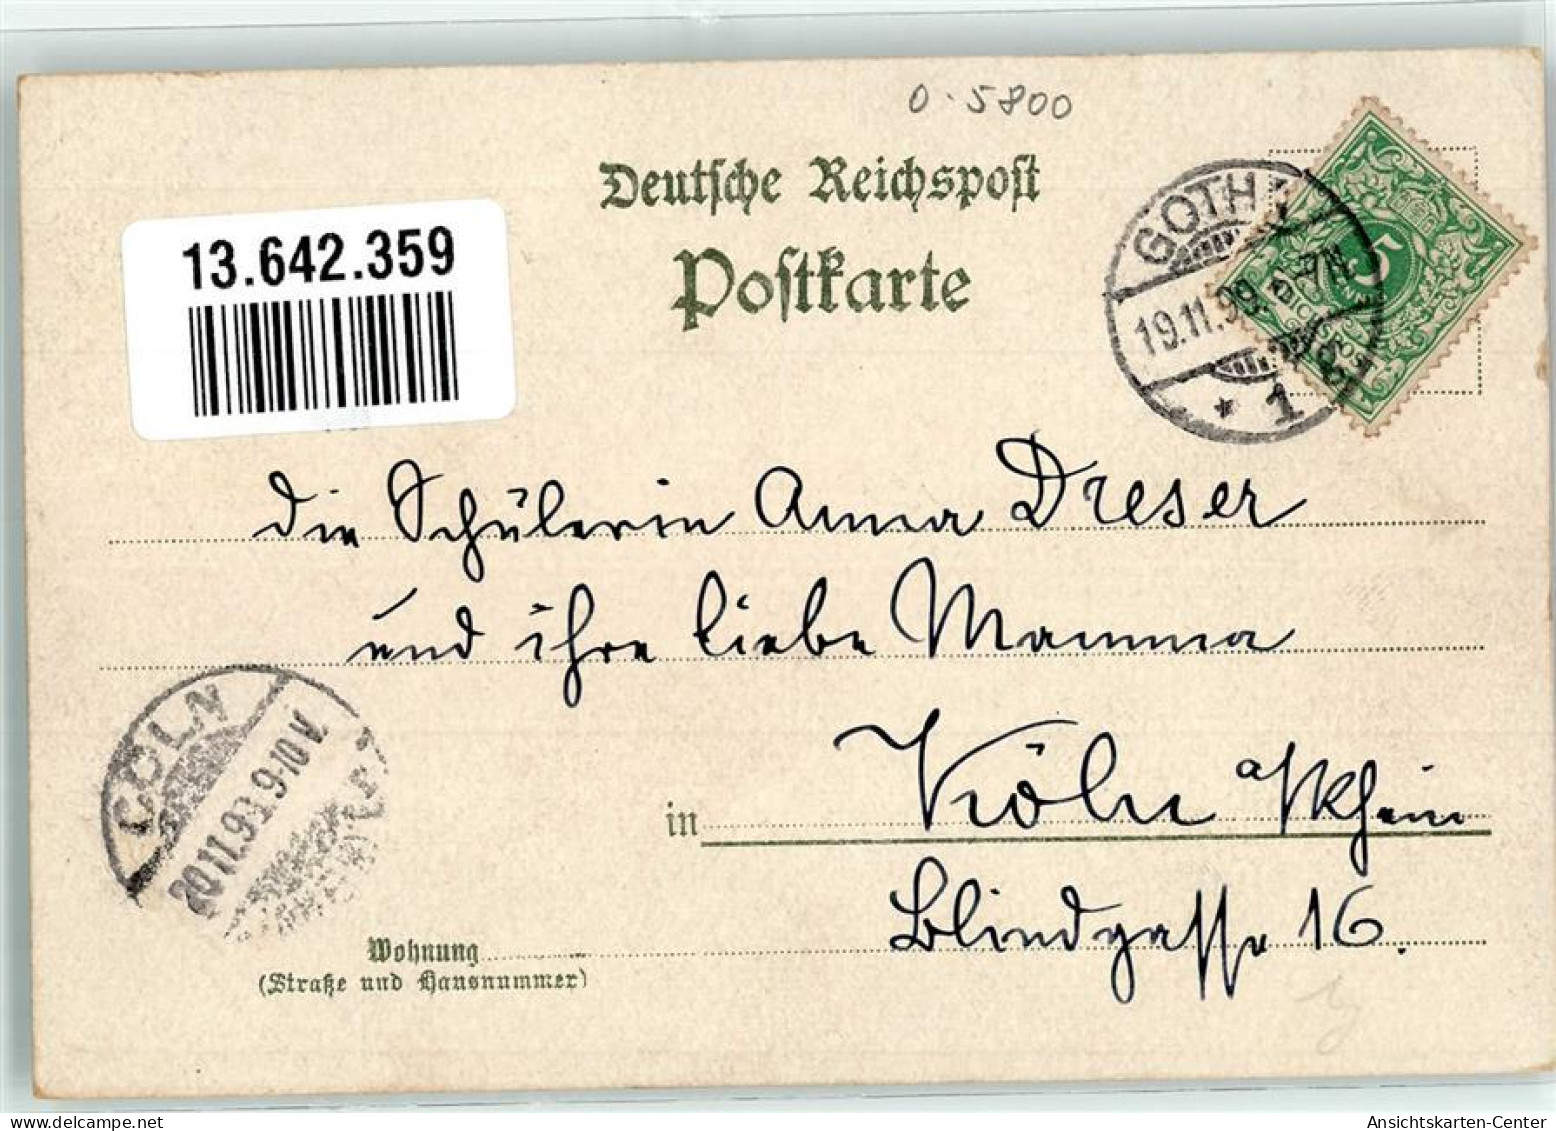 0.5800
Deutsche Reichspost
Postkarte
13.642.359
GOTHA
19.11.99. 6-7N.
* 1
5
REICHSPOST
die Schülerin Anna Dreser
und ihre liebe Mamma
in Köln a/Rhein
Blindgasse 16.
CÖLN
20.11.99. 9-10 V.
Wohnung
(Straße und Hausnummer)
Ansichtskarten-Center